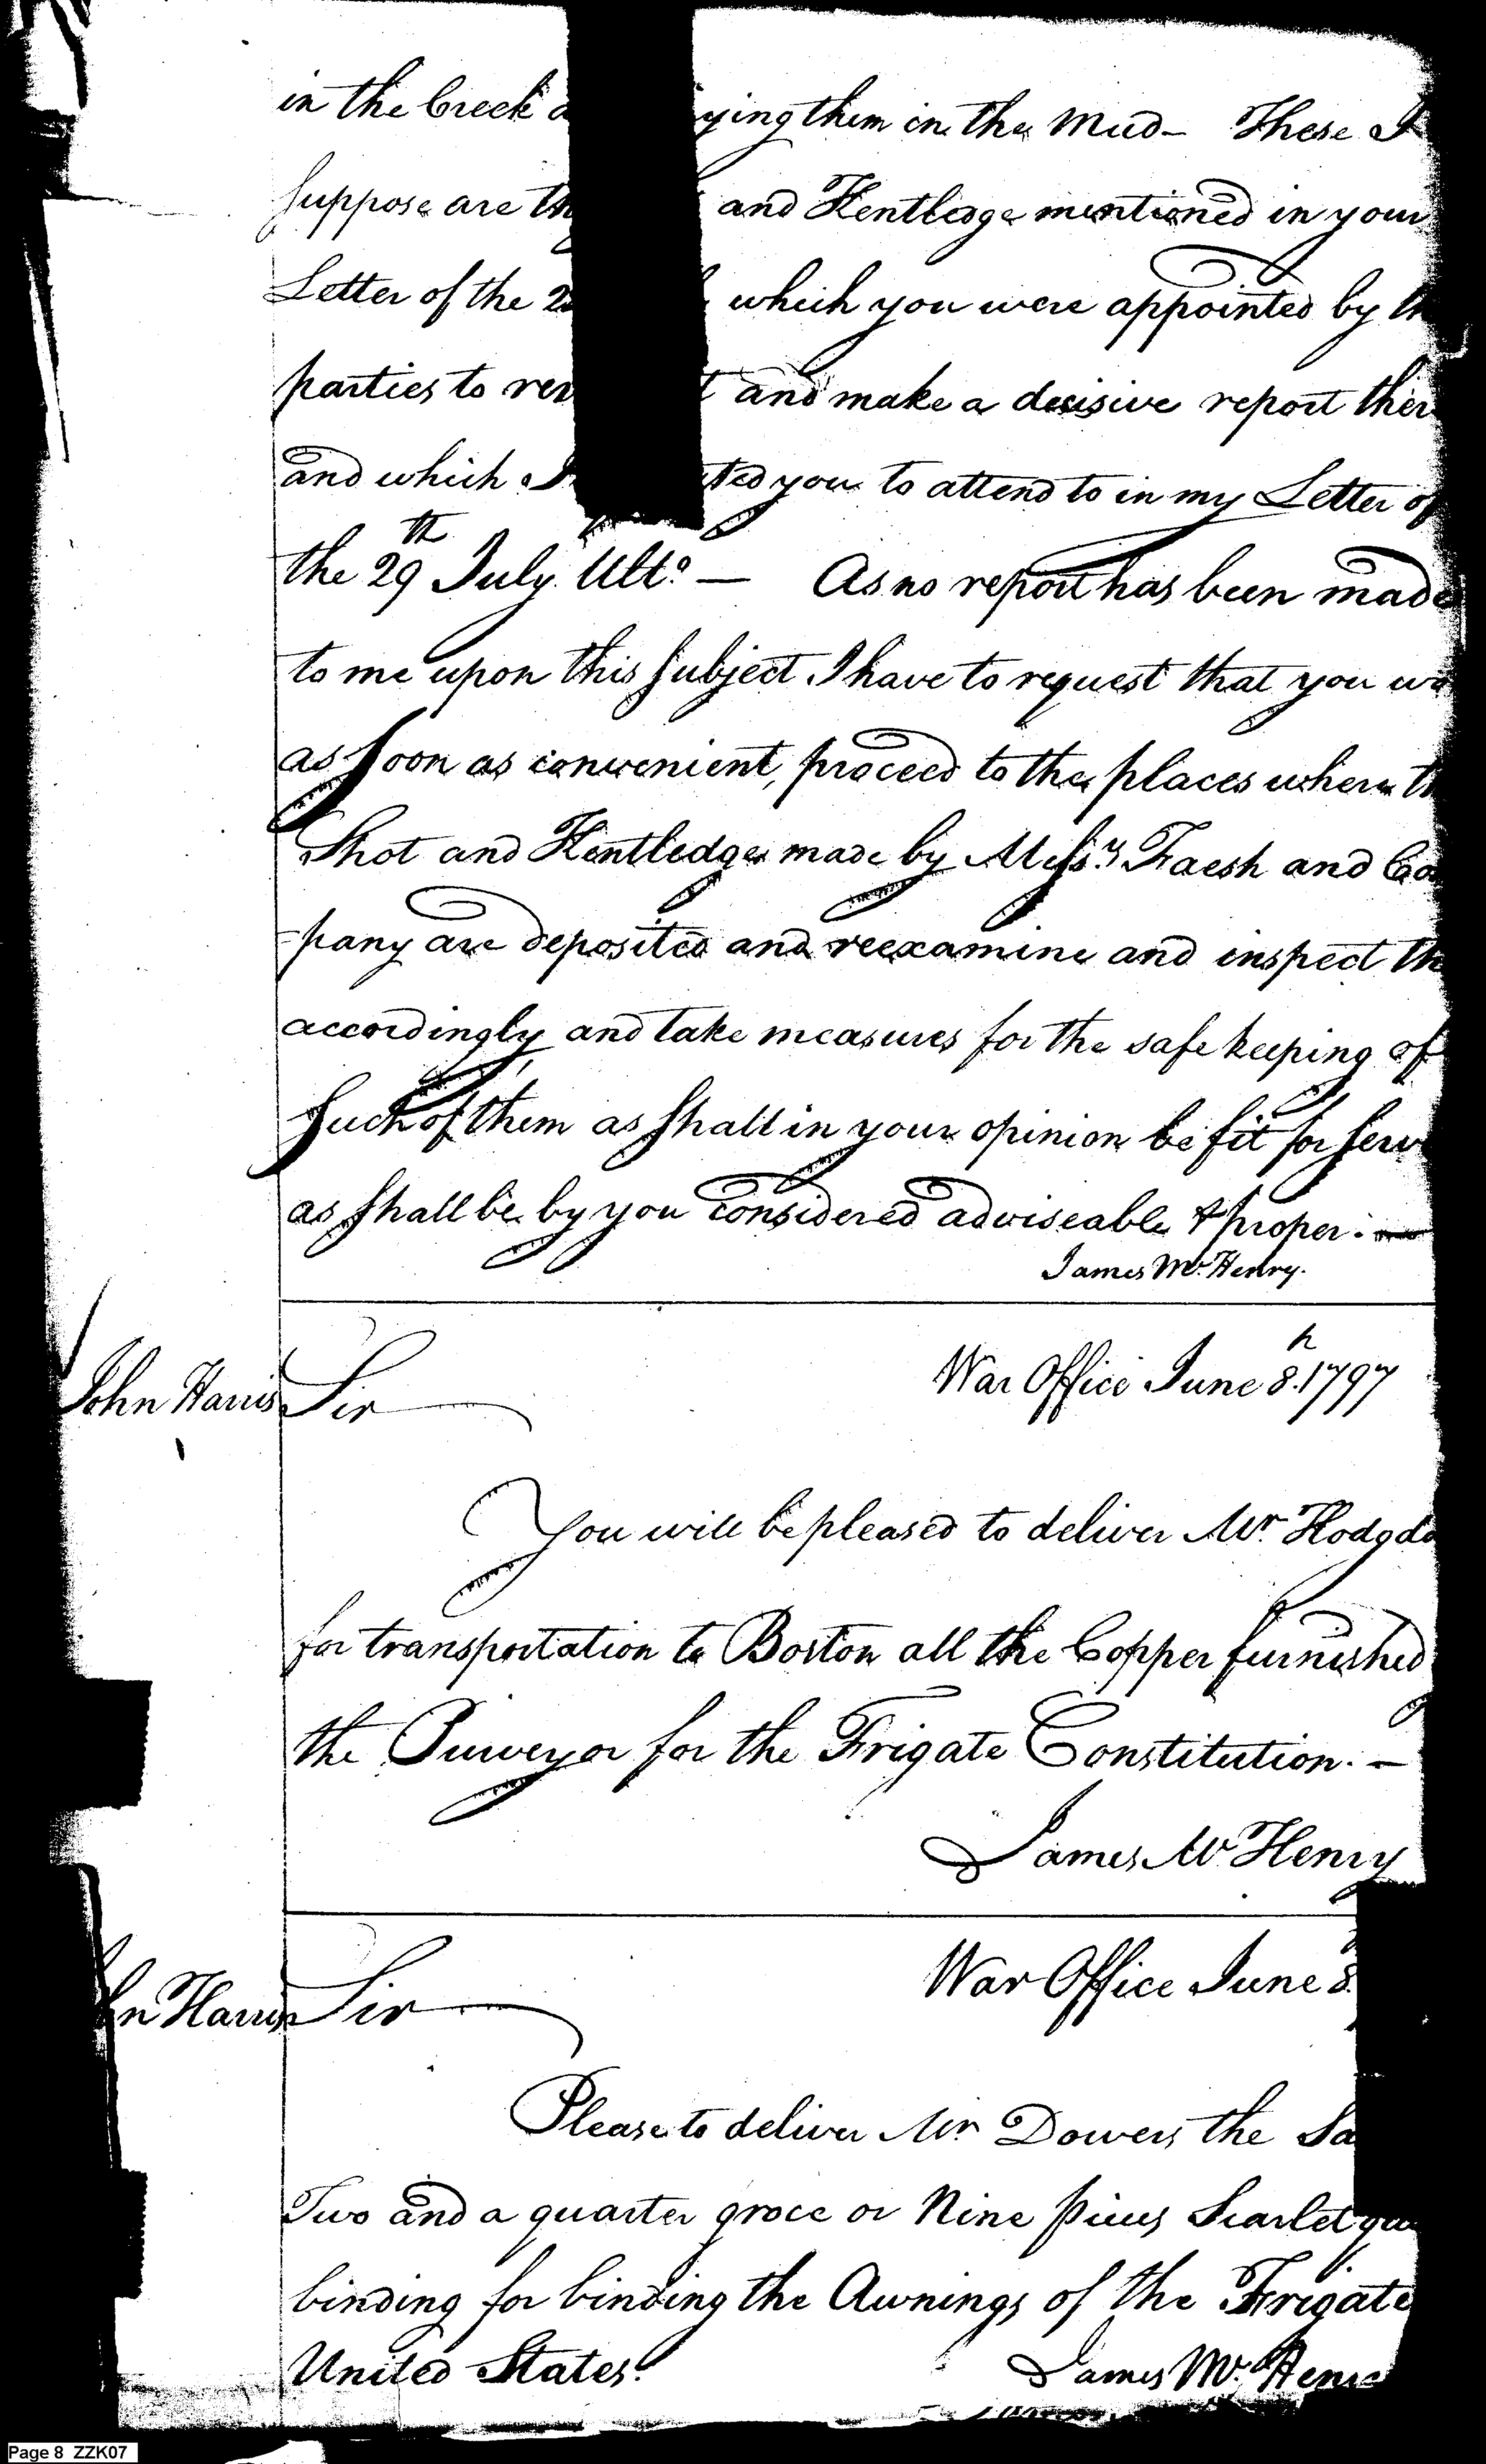 in the Creek a ying them in the Mud — These I
suppose are th and Kentledge mentioned in your
Letter of the 2 which you were appointed by th
parties to rev t and make a decisive report ther
and which I ted you to attend to in my Letter of
the 29th July Ulto. — As no report has been made
to me upon this subject I have to request that you wi
as soon as convenient, proceed to the places where th
Shot and Kentledge made by Messrs. Faesh and Com
pany are deposited and reexamine and inspect the
accordingly, and take measures for the safe keeping of
such of them as shall in your opinion be fit for serv
as shall be by you considered adviseable & proper. —
James McHenry.
War Office June 8h. 1797
John Harris Sir
You will be pleased to deliver Mr. Hodgdo
for transportation to Boston all the Copper furnished
the Purveyor for the Frigate Constitution. —
James McHenry
War Office June 8.
hn Harris Sir
Please to deliver Mr Dowers the Sa
Two and a quarter groce or Nine pieces Scarlet qua
binding for binding the Awnings of the Frigate
United States.
James McHenr
Page 8 ZZK07